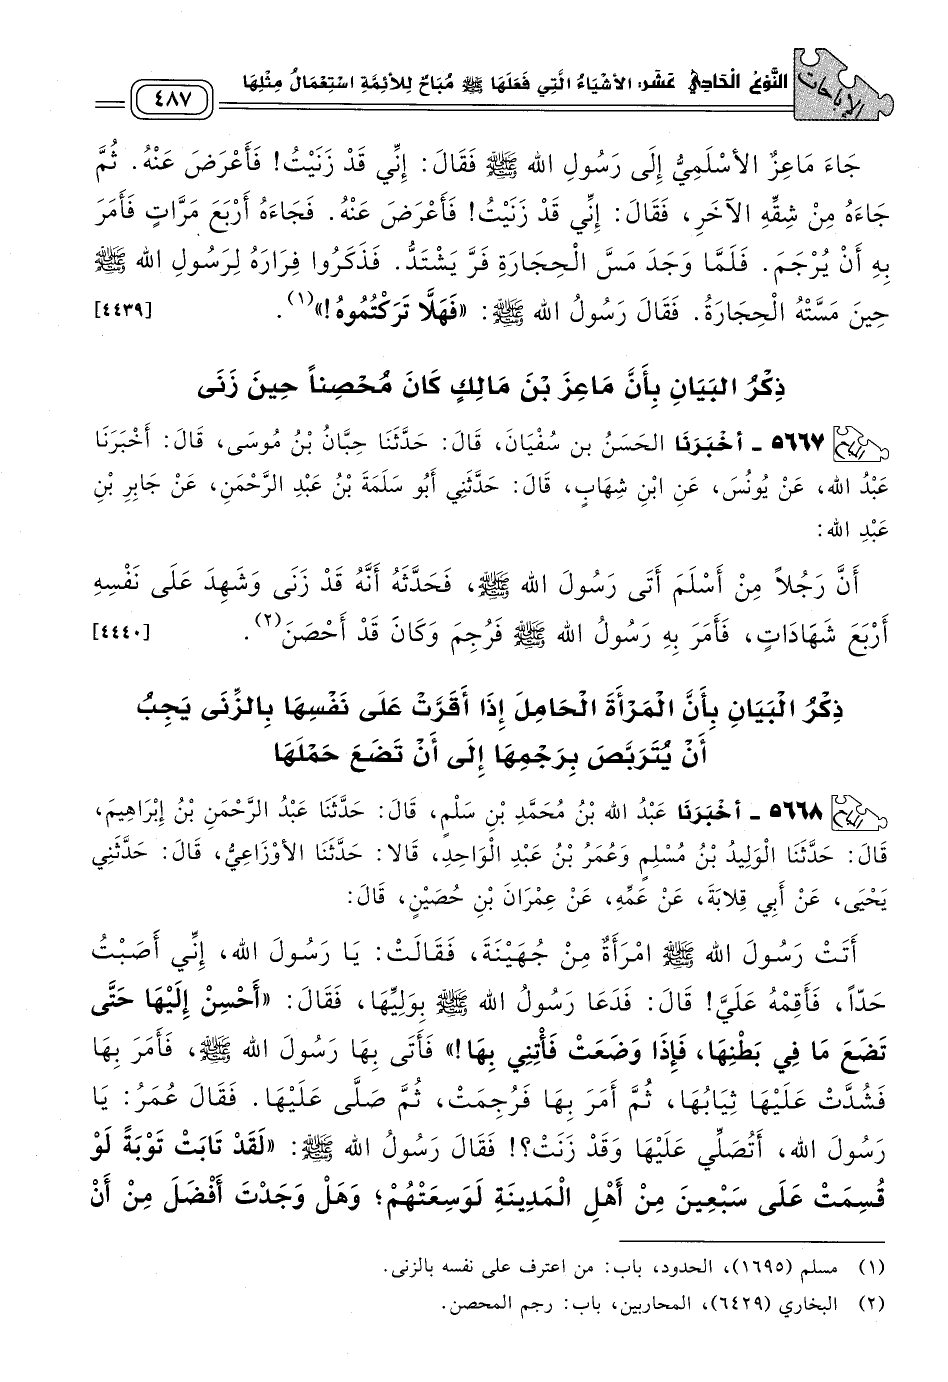 الإباحات
النَّوْعُ الْحَادِي عَشَر: الأَشْيَاءُ الَّتِي فَعَلَهَا ﷺ مُبَاحٌ لِلأَئِمَّةِ اسْتِعْمَالُ مِثْلِهَا
٤٨٧
جَاءَ مَاعِزٌ الأَسْلَمِيُّ إِلَى رَسُولِ الله ﷺ فَقَالَ: إِنِّي قَدْ زَنَيْتُ! فَأَعْرَضَ عَنْهُ. ثُمَّ
جَاءَهُ مِنْ شِقِّهِ الآخَرِ، فَقَالَ: إِنِّي قَدْ زَنَيْتُ! فَأَعْرَضَ عَنْهُ. فَجَاءَهُ أَرْبَعَ مَرَّاتٍ فَأَمَرَ
بِهِ أَنْ يُرْجَمَ. فَلَمَّا وَجَدَ مَسَّ الْحِجَارَةِ فَرَّ يَشْتَدُّ. فَذَكَرُوا فِرَارَهُ لِرَسُولِ الله ﷺ
حِينَ مَسَّتْهُ الْحِجَارَةُ. فَقَالَ رَسُولُ الله ﷺ: «فَهَلَّا تَرَكْتُمُوهُ!»(١). [٤٤٣٩]
ذِكْرُ البَيَانِ بِأَنَّ مَاعِزَ بْنَ مَالِكٍ كَانَ مُحْصِناً حِينَ زَنَى
٥٦٦٧ ـ أَخْبَرَنَا الحَسَنُ بن سُفْيَانَ، قَالَ: حَدَّثَنَا حِبَّانُ بْنُ مُوسَى، قَالَ: أَخْبَرَنَا
عَبْدُ الله، عَنْ يُونُسَ، عَنِ ابْنِ شِهَابٍ، قَالَ: حَدَّثَنِي أَبُو سَلَمَةَ بْنُ عَبْدِ الرَّحْمَنِ، عَنْ جَابِرِ بْنِ
عَبْدِ الله:
أَنَّ رَجُلاً مِنْ أَسْلَمَ أَتَى رَسُولَ الله ﷺ، فَحَدَّثَهُ أَنَّهُ قَدْ زَنَى وَشَهِدَ عَلَى نَفْسِهِ
أَرْبَعَ شَهَادَاتٍ، فَأَمَرَ بِهِ رَسُولُ الله ﷺ فَرُجِمَ وَكَانَ قَدْ أَحْصَنَ(٢). [٤٤٤٠]
ذِكْرُ الْبَيَانِ بِأَنَّ الْمَرْأَةَ الْحَامِلَ إِذَا أَقَرَّتْ عَلَى نَفْسِهَا بِالزِّنَى يَجِبُ
أَنْ يُتَرَبَّصَ بِرَجْمِهَا إِلَى أَنْ تَضَعَ حَمْلَهَا
٥٦٦٨ ـ أَخْبَرَنَا عَبْدُ الله بْنُ مُحَمَّدِ بْنِ سَلْمٍ، قَالَ: حَدَّثَنَا عَبْدُ الرَّحْمَنِ بْنُ إِبْرَاهِيمَ،
قَالَ: حَدَّثَنَا الْوَلِيدُ بْنُ مُسْلِمٍ وَعُمَرُ بْنُ عَبْدِ الْوَاحِدِ، قَالا: حَدَّثَنَا الأَوْزَاعِيُّ، قَالَ: حَدَّثَنِي
يَحْيَى، عَنْ أَبِي قِلابَةَ، عَنْ عَمِّهِ، عَنْ عِمْرَانَ بْنِ حُصَيْنٍ، قَالَ:
أَتَتْ رَسُولَ الله ﷺ امْرَأَةٌ مِنْ جُهَيْنَةَ، فَقَالَتْ: يَا رَسُولَ الله، إِنِّي أَصَبْتُ
حَدّاً، فَأَقِمْهُ عَلَيَّ! قَالَ: فَدَعَا رَسُولُ الله ﷺ بِوَلِيِّهَا، فَقَالَ: «أَحْسِنْ إِلَيْهَا حَتَّى
تَضَعَ مَا فِي بَطْنِهَا، فَإِذَا وَضَعَتْ فَأْتِنِي بِهَا!» فَأَتَى بِهَا رَسُولَ الله ﷺ، فَأَمَرَ بِهَا
فَشُدَّتْ عَلَيْهَا ثِيَابُهَا، ثُمَّ أَمَرَ بِهَا فَرُجِمَتْ، ثُمَّ صَلَّى عَلَيْهَا. فَقَالَ عُمَرُ: يَا
رَسُولَ الله، أَتُصَلِّي عَلَيْهَا وَقَدْ زَنَتْ؟! فَقَالَ رَسُولُ الله ﷺ: «لَقَدْ تَابَتْ تَوْبَةً لَوْ
قُسِمَتْ عَلَى سَبْعِينَ مِنْ أَهْلِ الْمَدِينَةِ لَوَسِعَتْهُمْ؛ وَهَلْ وَجَدْتَ أَفْضَلَ مِنْ أَنْ
(١) مسلم (١٦٩٥)، الحدود، باب: من اعترف على نفسه بالزنى.
(٢) البخاري (٦٤٢٩)، المحاربين، باب: رجم المحصن.